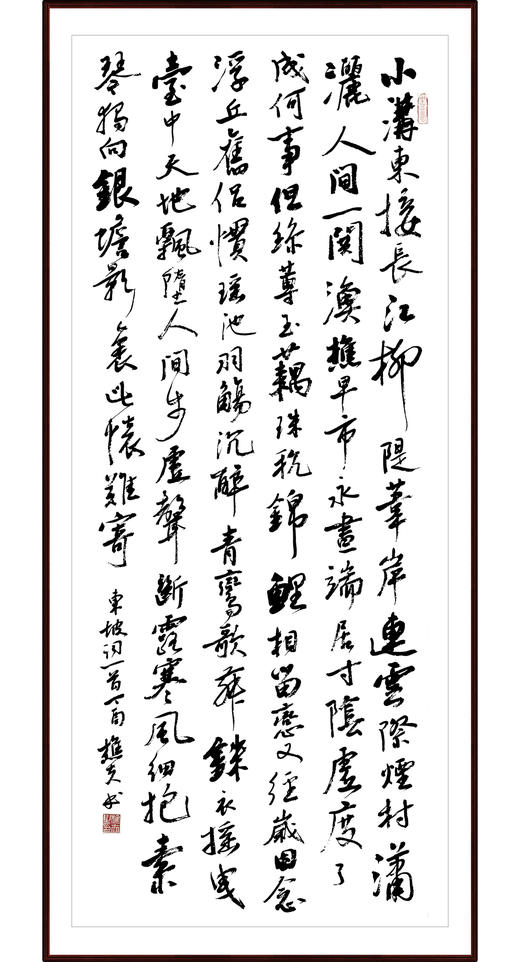 小溝東接長江柳隄葦岸連雲際煙村瀟
灑人間一閧漁樵早市永晝端居寸陰虛度了
成何事但絲蓴玉藕珠秔錦鯉相留戀又經歲因念
浮丘舊侶慣瑤池羽觴沉醉青鸞歌舞銖衣搖曳
臺中天地飄墮人間步虛聲斷露寒風細抱素
琴獨向銀蟾影裏此懷難寄 東坡詞一首丁酉樵夫书